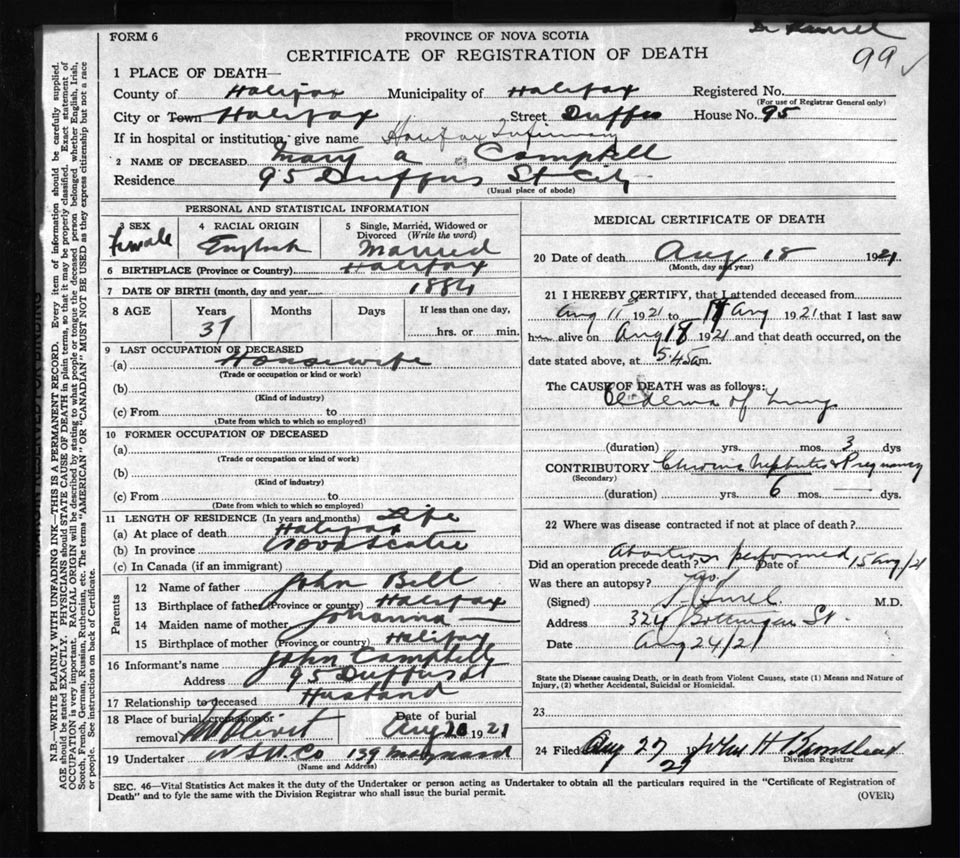 FORM 6
PROVINCE OF NOVA SCOTIA
Dr
99
CERTIFICATE OF REGISTRATION OF DEATH
1 PLACE OF DEATH—
County of Halifax Municipality of Halifax Registered No.
(For use of Registrar General only)
City or Town Halifax Street Duffus House No. 95
If in hospital or institution, give name Halifax Infirmary
2 NAME OF DECEASED Mary A Campbell
Residence 95 Duffus St City
(Usual place of abode)
PERSONAL AND STATISTICAL INFORMATION
3 SEX
female
4 RACIAL ORIGIN
English
5 Single, Married, Widowed or Divorced (Write the word)
Married
6 BIRTHPLACE (Province or Country) Halifax
7 DATE OF BIRTH (month, day and year) 1884
8 AGE Years Months Days If less than one day,
37 hrs. or min.
9 LAST OCCUPATION OF DECEASED
(a) Housewife
(Trade or occupation or kind or work)
(b)
(Kind of industry)
(c) From to
(Date from which to which so employed)
10 FORMER OCCUPATION OF DECEASED
(a)
(Trade or occupation or kind of work)
(b)
(Kind of industry)
(c) From to
(Date from which to which so employed)
11 LENGTH OF RESIDENCE (In years and months) Life
(a) At place of death Halifax
(b) In province Nova Scotia
(c) In Canada (if an immigrant)
Parents
12 Name of father John Bell
13 Birthplace of father (Province or country) Halifax
14 Maiden name of mother Johanna —
15 Birthplace of mother (Province or country) Halifax
16 Informant's name John Campbell
Address 95 Duffus St
17 Relationship to deceased Husband
18 Place of burial, cremation or removal Mt Olivet
Date of burial Aug 20 1921
19 Undertaker N.S.U. Co 139 Maynard
(Name and Address)
MEDICAL CERTIFICATE OF DEATH
20 Date of death Aug 18 1921
(Month, day and year)
21 I HEREBY CERTIFY, that I attended deceased from
Aug 11 1921 to 18 Aug 1921 that I last saw
h alive on Aug 18 1921 and that death occurred, on the
date stated above, at 5.45 am.
The CAUSE OF DEATH was as follows:
Oedema of Lungs
(duration) yrs. mos. 3 dys
CONTRIBUTORY Chronic Nephritis & Pregnancy
(Secondary)
(duration) yrs. 6 mos. — dys.
22 Where was disease contracted if not at place of death?
Abortion performed
Did an operation precede death? Date of 15 Aug/21
Was there an autopsy?
(Signed) M.D.
Address 324 St.
Date Aug 24/21
State the Disease causing Death, or in death from Violent Causes, state (1) Means and Nature of
Injury, (2) whether Accidental, Suicidal or Homicidal.
23
24 Filed Aug 27 21 John H
Division Registrar
SEC. 46—Vital Statistics Act makes it the duty of the Undertaker or person acting as Undertaker to obtain all the particulars required in the "Certificate of Registration of
Death" and to fyle the same with the Division Registrar who shall issue the burial permit.
(OVER)
N.B.—WRITE PLAINLY WITH UNFADING INK—THIS IS A PERMANENT RECORD. Every item of information should be carefully supplied.
AGE should be stated EXACTLY. PHYSICIANS should STATE CAUSE OF DEATH in plain terms, so that it may be properly classified. Exact statement of
OCCUPATION is very important. RACIAL ORIGIN will be described by stating to what people or tongue the deceased person belonged whether English, Irish,
Scotch, French, German, Russian, Ruthenian, etc. The terms "AMERICAN" OR "CANADIAN" MUST NOT BE USED as they express citizenship but not a race
or people. See instructions on back of Certificate.
RESERVED FOR BINDING